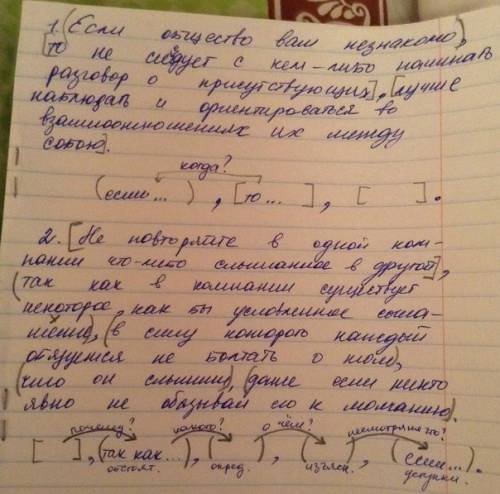 1. (Если общество вам незнакомо),
[то не следует с кем-либо начинать
разговор о присутствующих], [лучше
наблюдать и ориентироваться во
взаимоотношениях их между
собою].
когда?
(если...), [то...], [ ].
2. [Не повторяйте в одной ком-
пании что-либо слышанное в другой],
(так как в компании существует
некоторое, как бы условленное согла-
шение), (в силу которого каждый
обязуется не болтать о том),
(что он слышит), (даже если никто
явно не обязывал его к молчанию).
почему? какого? о чём? несмотря на что?
[ ], (так как...), ( ), ( ), (если...).
обстоят. опред. изъясн. уступки.